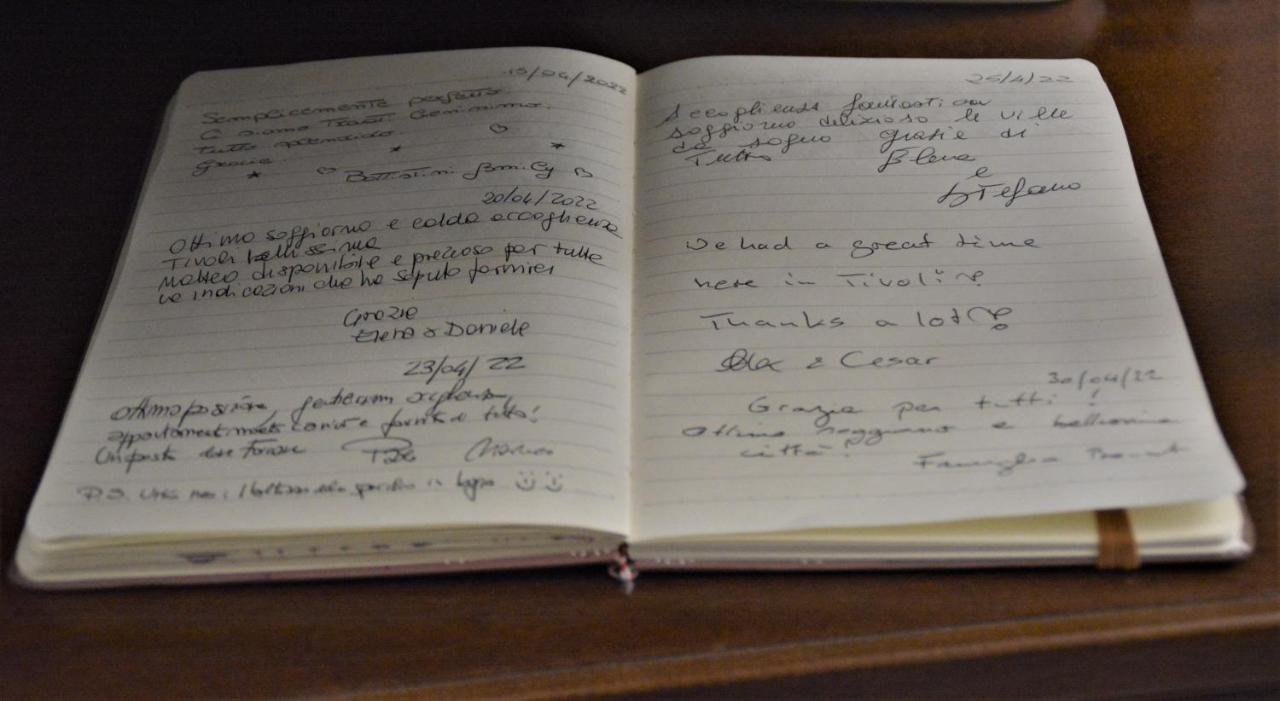 15/04/2022
Semplicemente perfetto
Ci siamo Trovati Benissimo.
tutto splendido
Grazie.
Battistini Family
20/04/2022
Ottimo soggiorno e calda accoglienza
Tivoli bellissima
Matteo disponibile e prezioso per tutte
le indicazioni che ha saputo fornirci
Grazie
Elena & Daniele
23/04/22
Ottima posizione,
appartamento e tutto!
P.S. in bagno
25/4/22
Accoglienza fantastica
soggiorno delizioso le ville
da sogno grazie di
Tutto Elena
e
Stefano
We had a great time
here in Tivoli
Thanks a lot
& Cesar
30/04/22
Grazie per tutti!
Ottimo soggiorno e bellissima
città! Famiglia